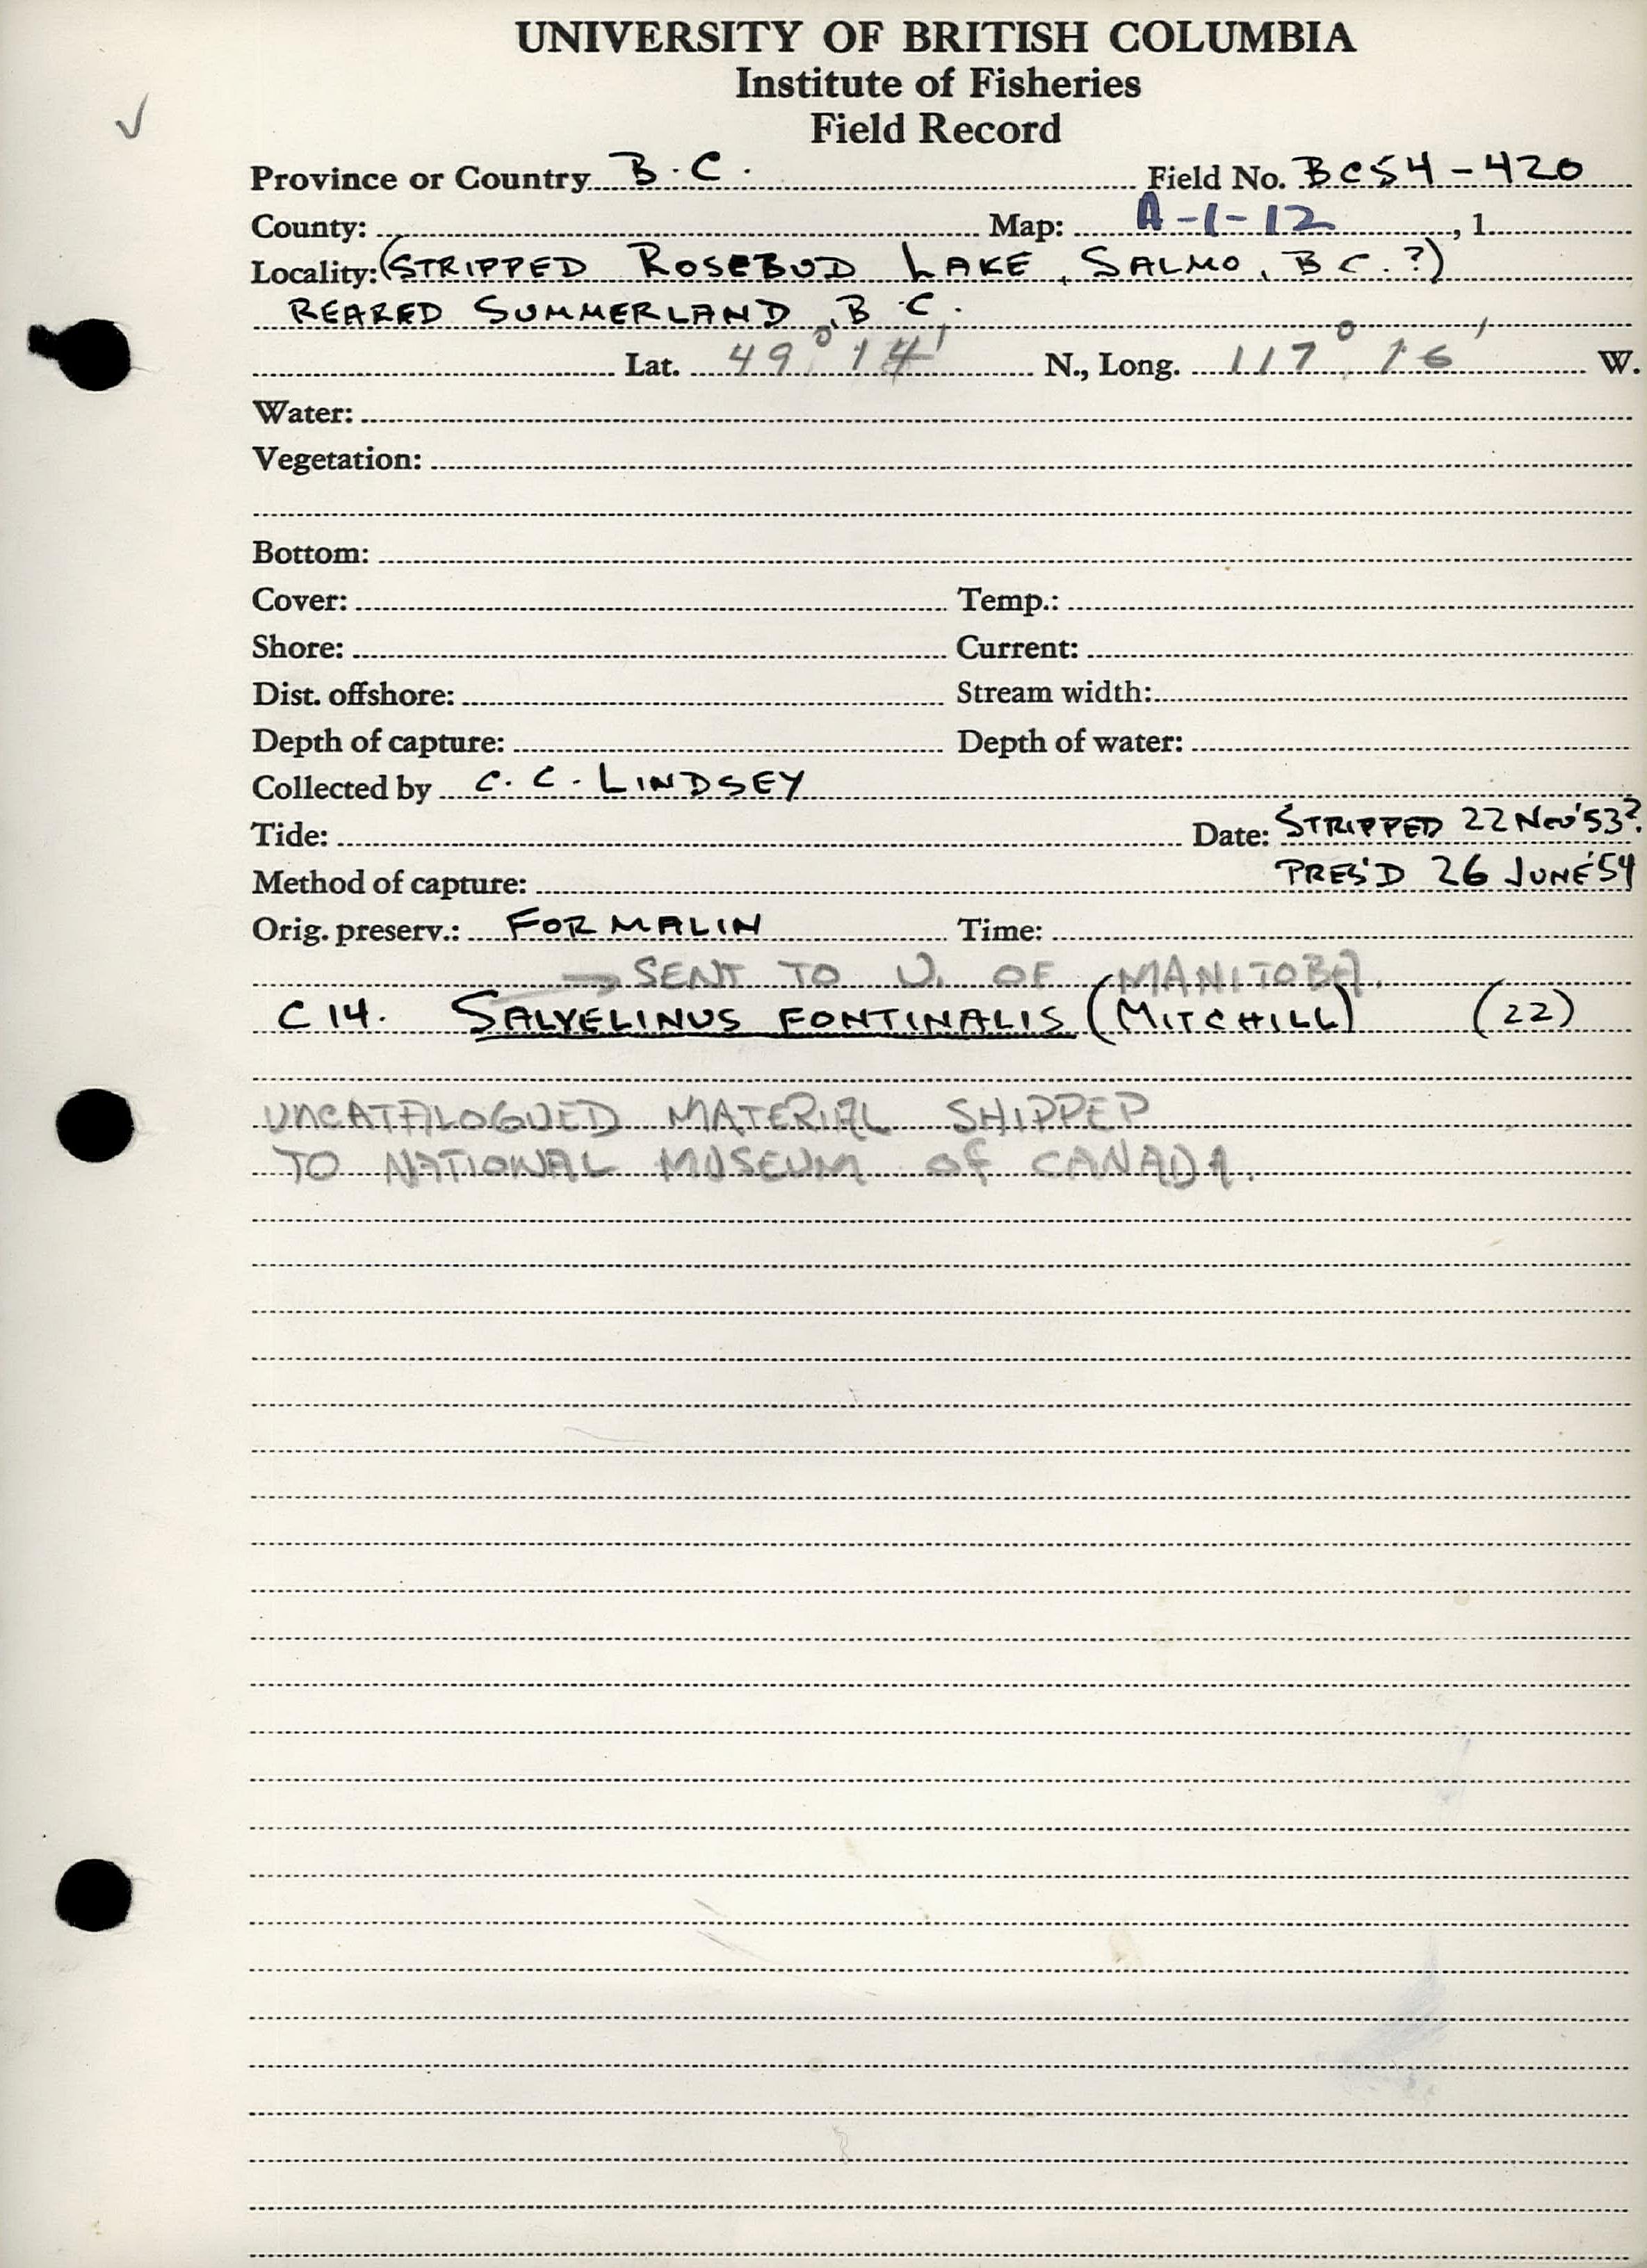 UNIVERSITY OF BRITISH COLUMBIA
Institute of Fisheries
Field Record
Province or Country B.C. Field No. BC54-420
County: Map: A-1-12, 1
Locality: (STRIPPED ROSEBUD LAKE, SALMO, B C.?)
REARED SUMMERLAND, B C.
Lat. 49° 14' N., Long. 117° 16' W.
Water:
Vegetation:
Bottom:
Cover: Temp.:
Shore: Current:
Dist. offshore: Stream width:
Depth of capture: Depth of water:
Collected by C. C. LINDSEY
Tide: Date: STRIPPED 22 NOV '53?
Method of capture: PRES'D 26 JUNE '54
Orig. preserv.: FORMALIN Time:
→ SENT TO U. OF MANITOBA.
C 14. SALVELINUS FONTINALIS (MITCHILL) (22)
UNCATALOGUED MATERIAL SHIPPED
TO NATIONAL MUSEUM OF CANADA.